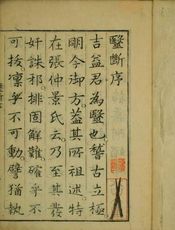 醫斷序
吉益君為醫也稽古立極
明今御方蓋其所祖述特
在張仲景氏云乃至其發
奸誅邪排固解難確乎不
可拔凜乎不可動譬猶執